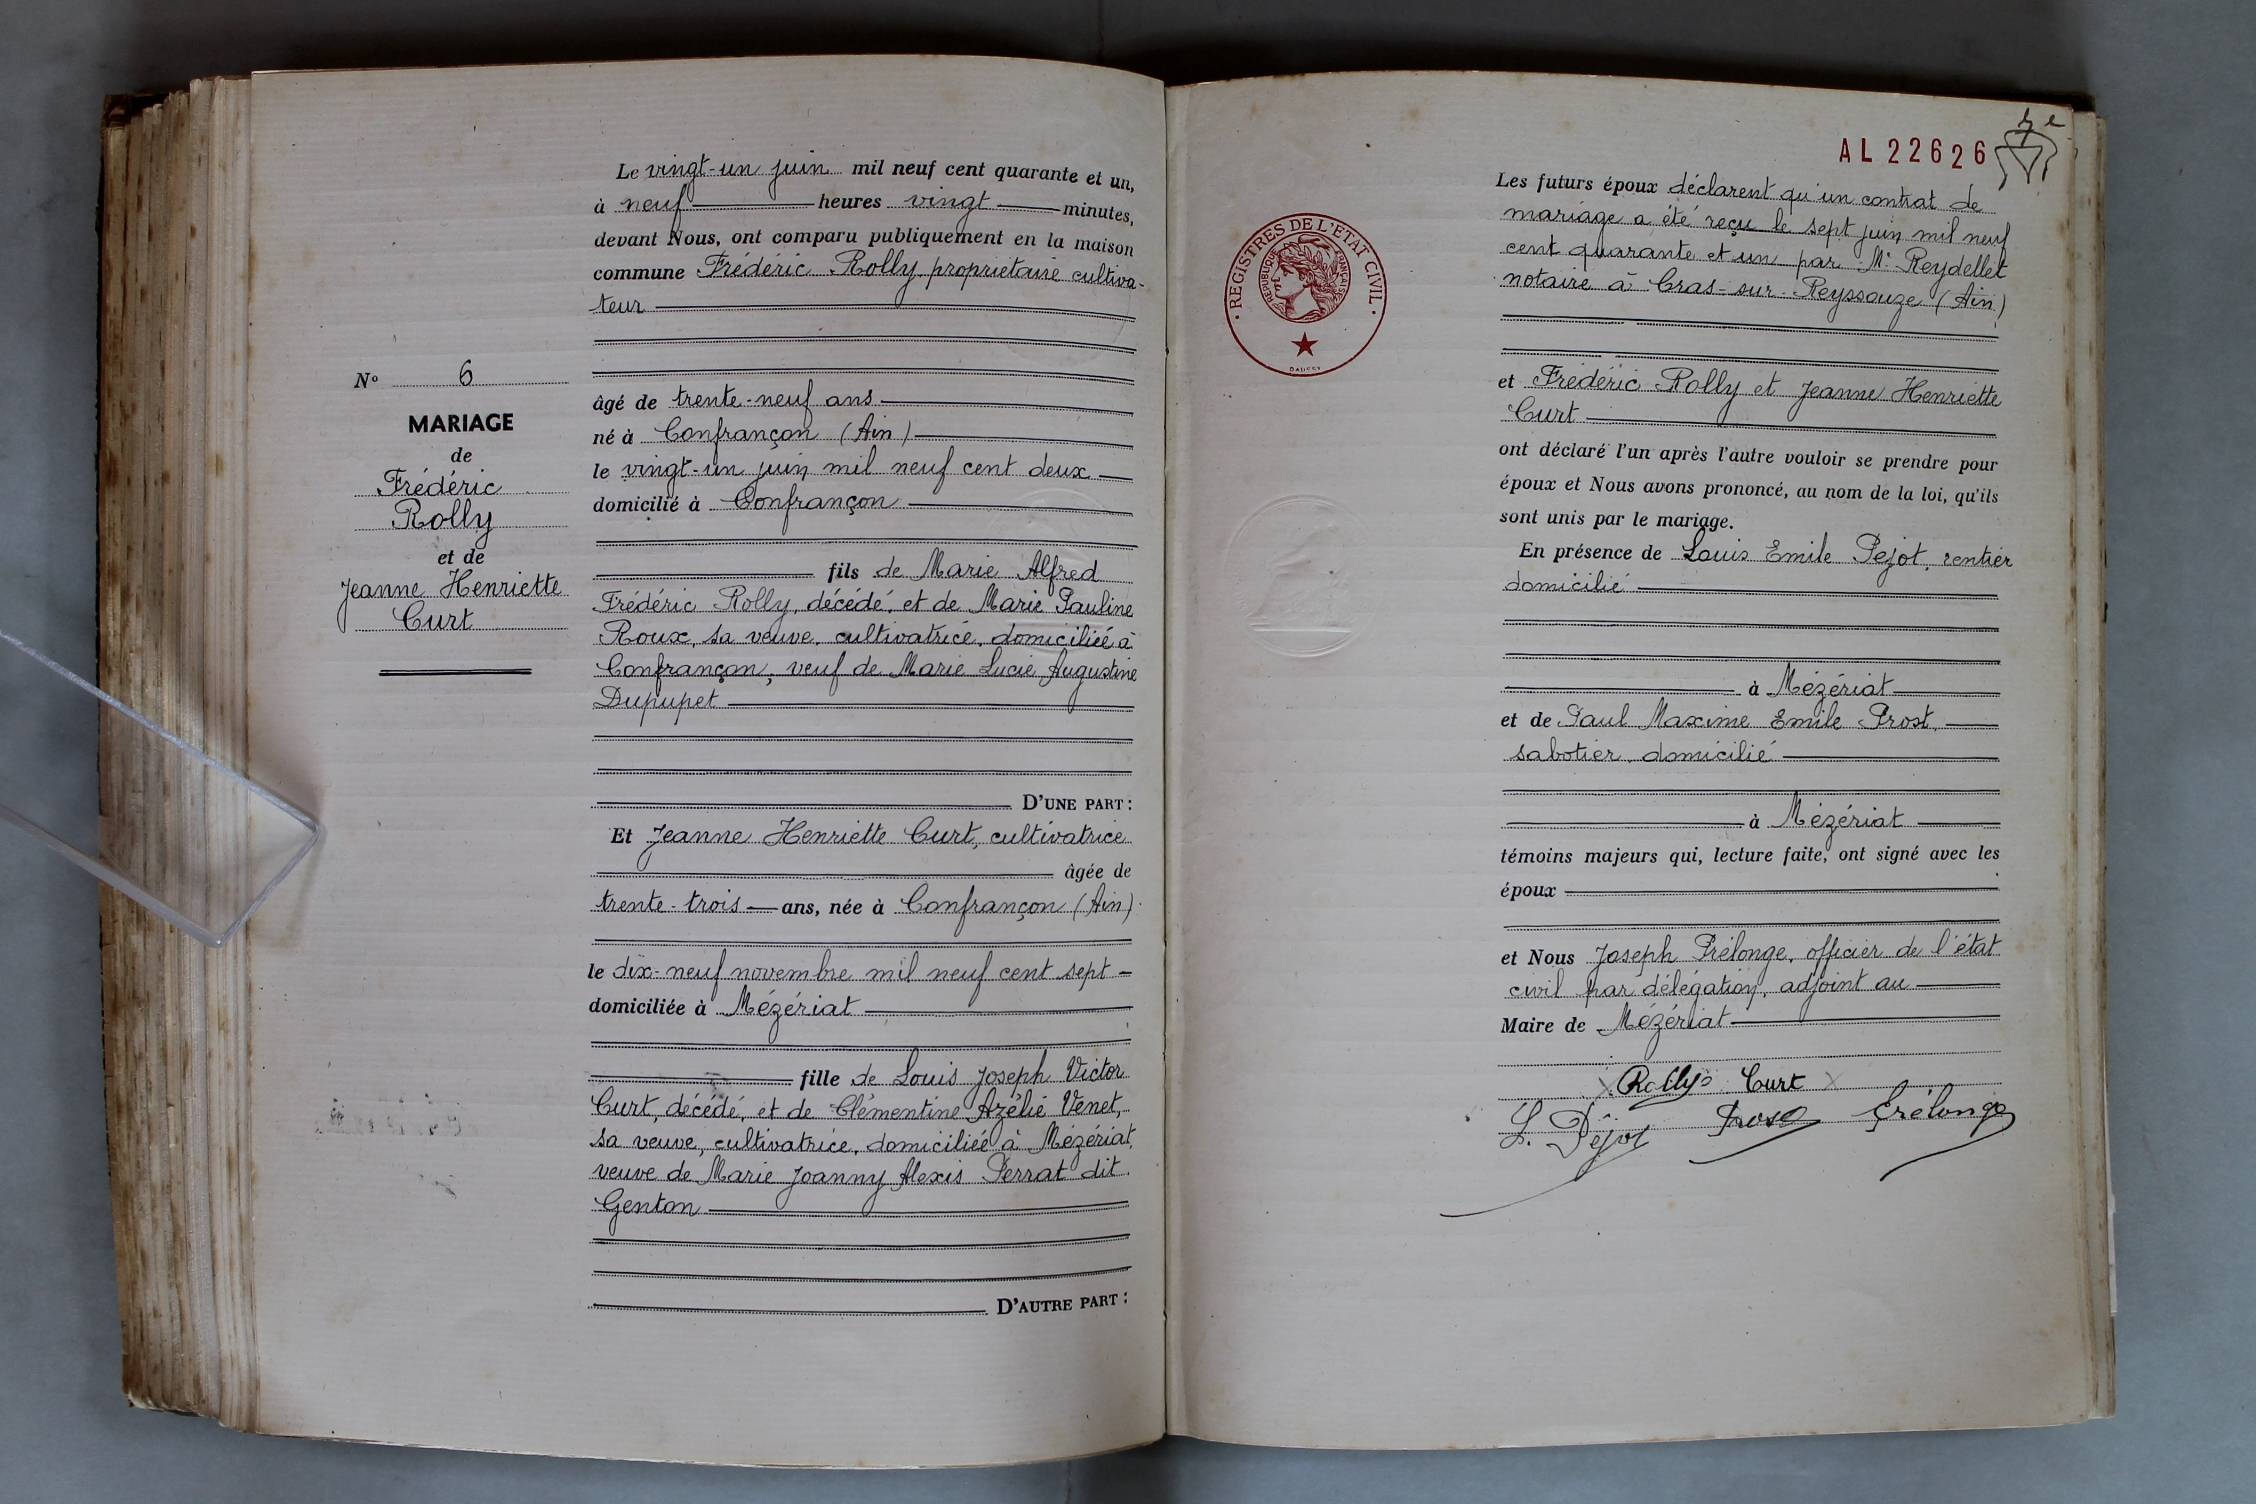 Le vingt-un juin mil neuf cent quarante et un,
à neuf heures vingt minutes,
devant Nous, ont comparu publiquement en la maison
commune Frédéric Rolly, propriétaire cultiva-
teur
N° 6
MARIAGE
de
Frédéric
Rolly
et de
Jeanne Henriette
Curt
âgé de trente-neuf ans
né à Confrançon (Ain)
le vingt-un juin mil neuf cent deux
domicilié à Confrançon
fils de Marie Alfred
Frédéric Rolly, décédé, et de Marie Pauline
Roux, sa veuve, cultivatrice, domiciliée à
Confrançon, veuf de Marie Lucie Augustine
Dupupet
D'UNE PART :
Et Jeanne Henriette Curt, cultivatrice
âgée de
trente-trois ans, née à Confrançon (Ain)
le dix-neuf novembre mil neuf cent sept
domiciliée à Mézériat
fille de Louis Joseph Victor
Curt, décédé, et de Clémentine Azélie Venet,
sa veuve, cultivatrice, domiciliée à Mézériat,
veuve de Marie Joanny Alexis Perrat dit
Genton
D'AUTRE PART :
AL 22626
REGISTRES DE L'ETAT CIVIL
REPUBLIQUE FRANÇAISE
Les futurs époux déclarent qu'un contrat de
mariage a été reçu le sept juin mil neuf
cent quarante et un par Me Reydellet
notaire à Cras-sur-Reyssouze (Ain)
et Frédéric Rolly et Jeanne Henriette
Curt
ont déclaré l'un après l'autre vouloir se prendre pour
époux et Nous avons prononcé, au nom de la loi, qu'ils
sont unis par le mariage.
En présence de Louis Emile Pejot, rentier
domicilié
à Mézériat
et de Paul Maxime Emile Prost,
sabotier, domicilié
à Mézériat
témoins majeurs qui, lecture faite, ont signé avec les
époux
et Nous Joseph Prélonge, officier de l'état
civil par délégation, adjoint au
Maire de Mézériat
Rolly Curt
L. Péjot Prost Prélonge